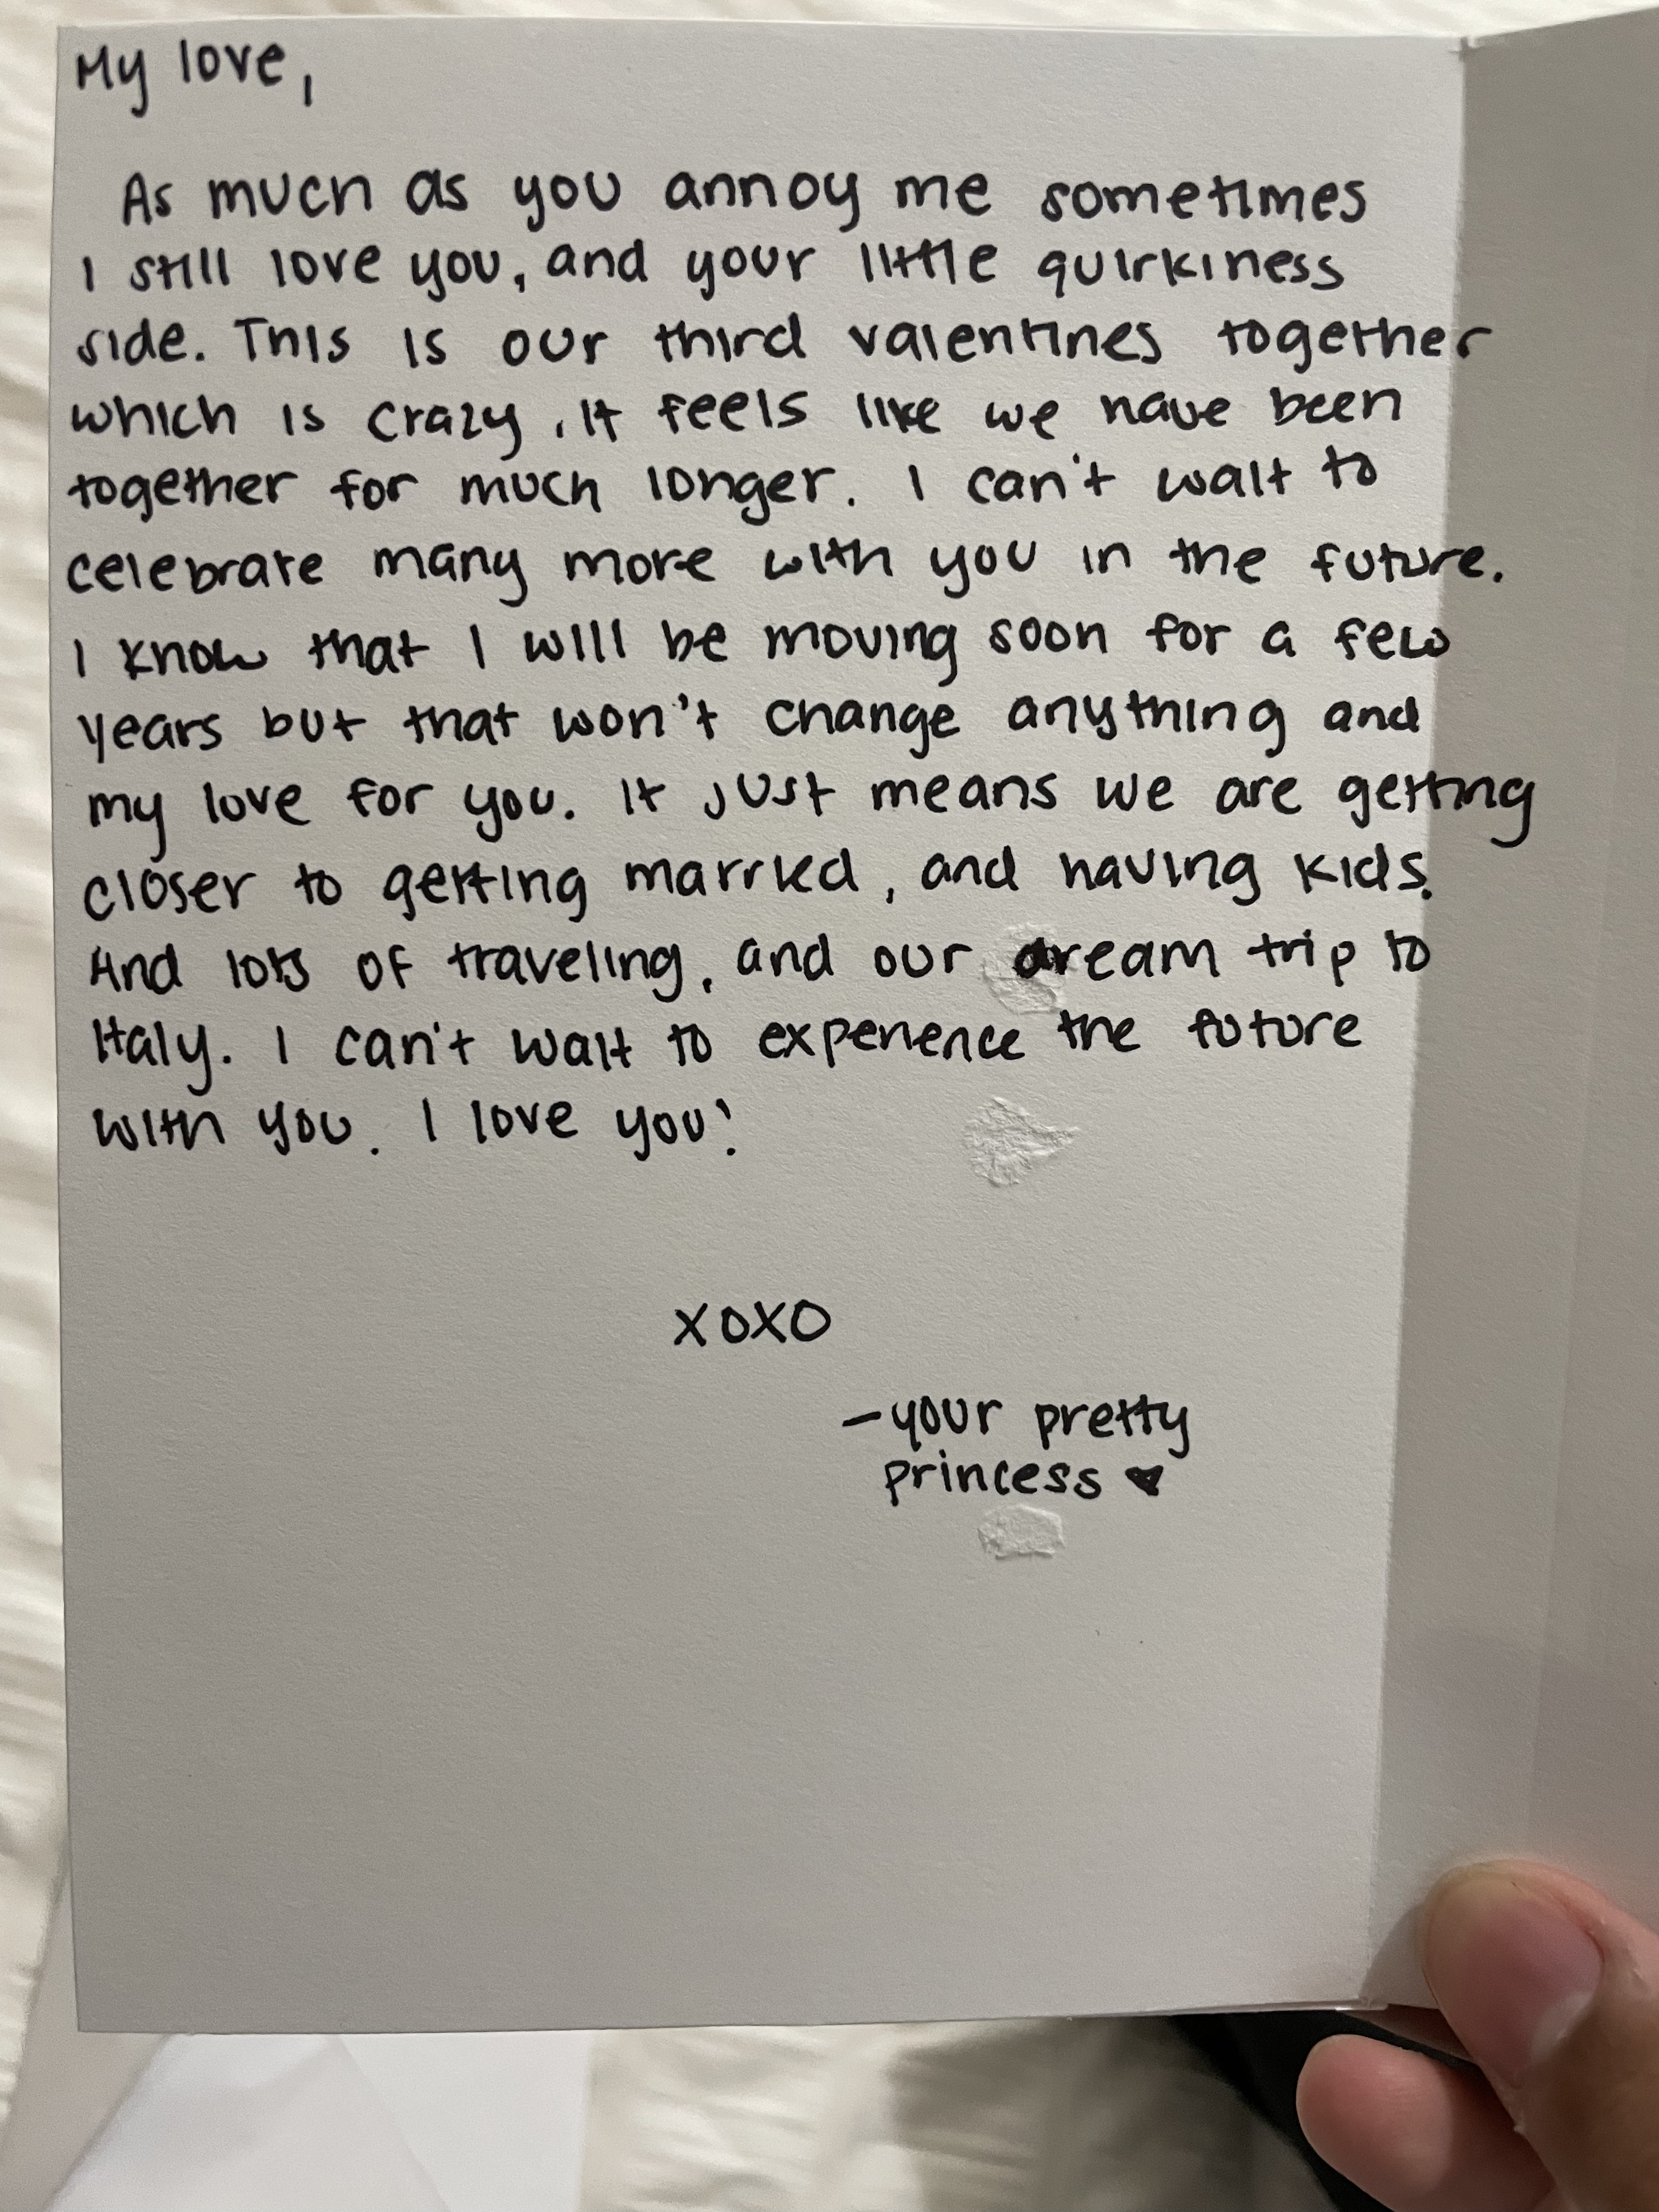 My love,
As much as you annoy me sometimes
I still love you, and your little quirkiness
side. This is our third valentines together
which is crazy, it feels like we have been
together for much longer. I can't wait to
celebrate many more with you in the future.
I know that I will be moving soon for a few
years but that won't change anything and
my love for you. It just means we are getting
closer to getting married, and having kids.
And lots of traveling, and our dream trip to
Italy. I can't wait to experience the future
with you. I love you!
XOXO
-your pretty
princess ♥